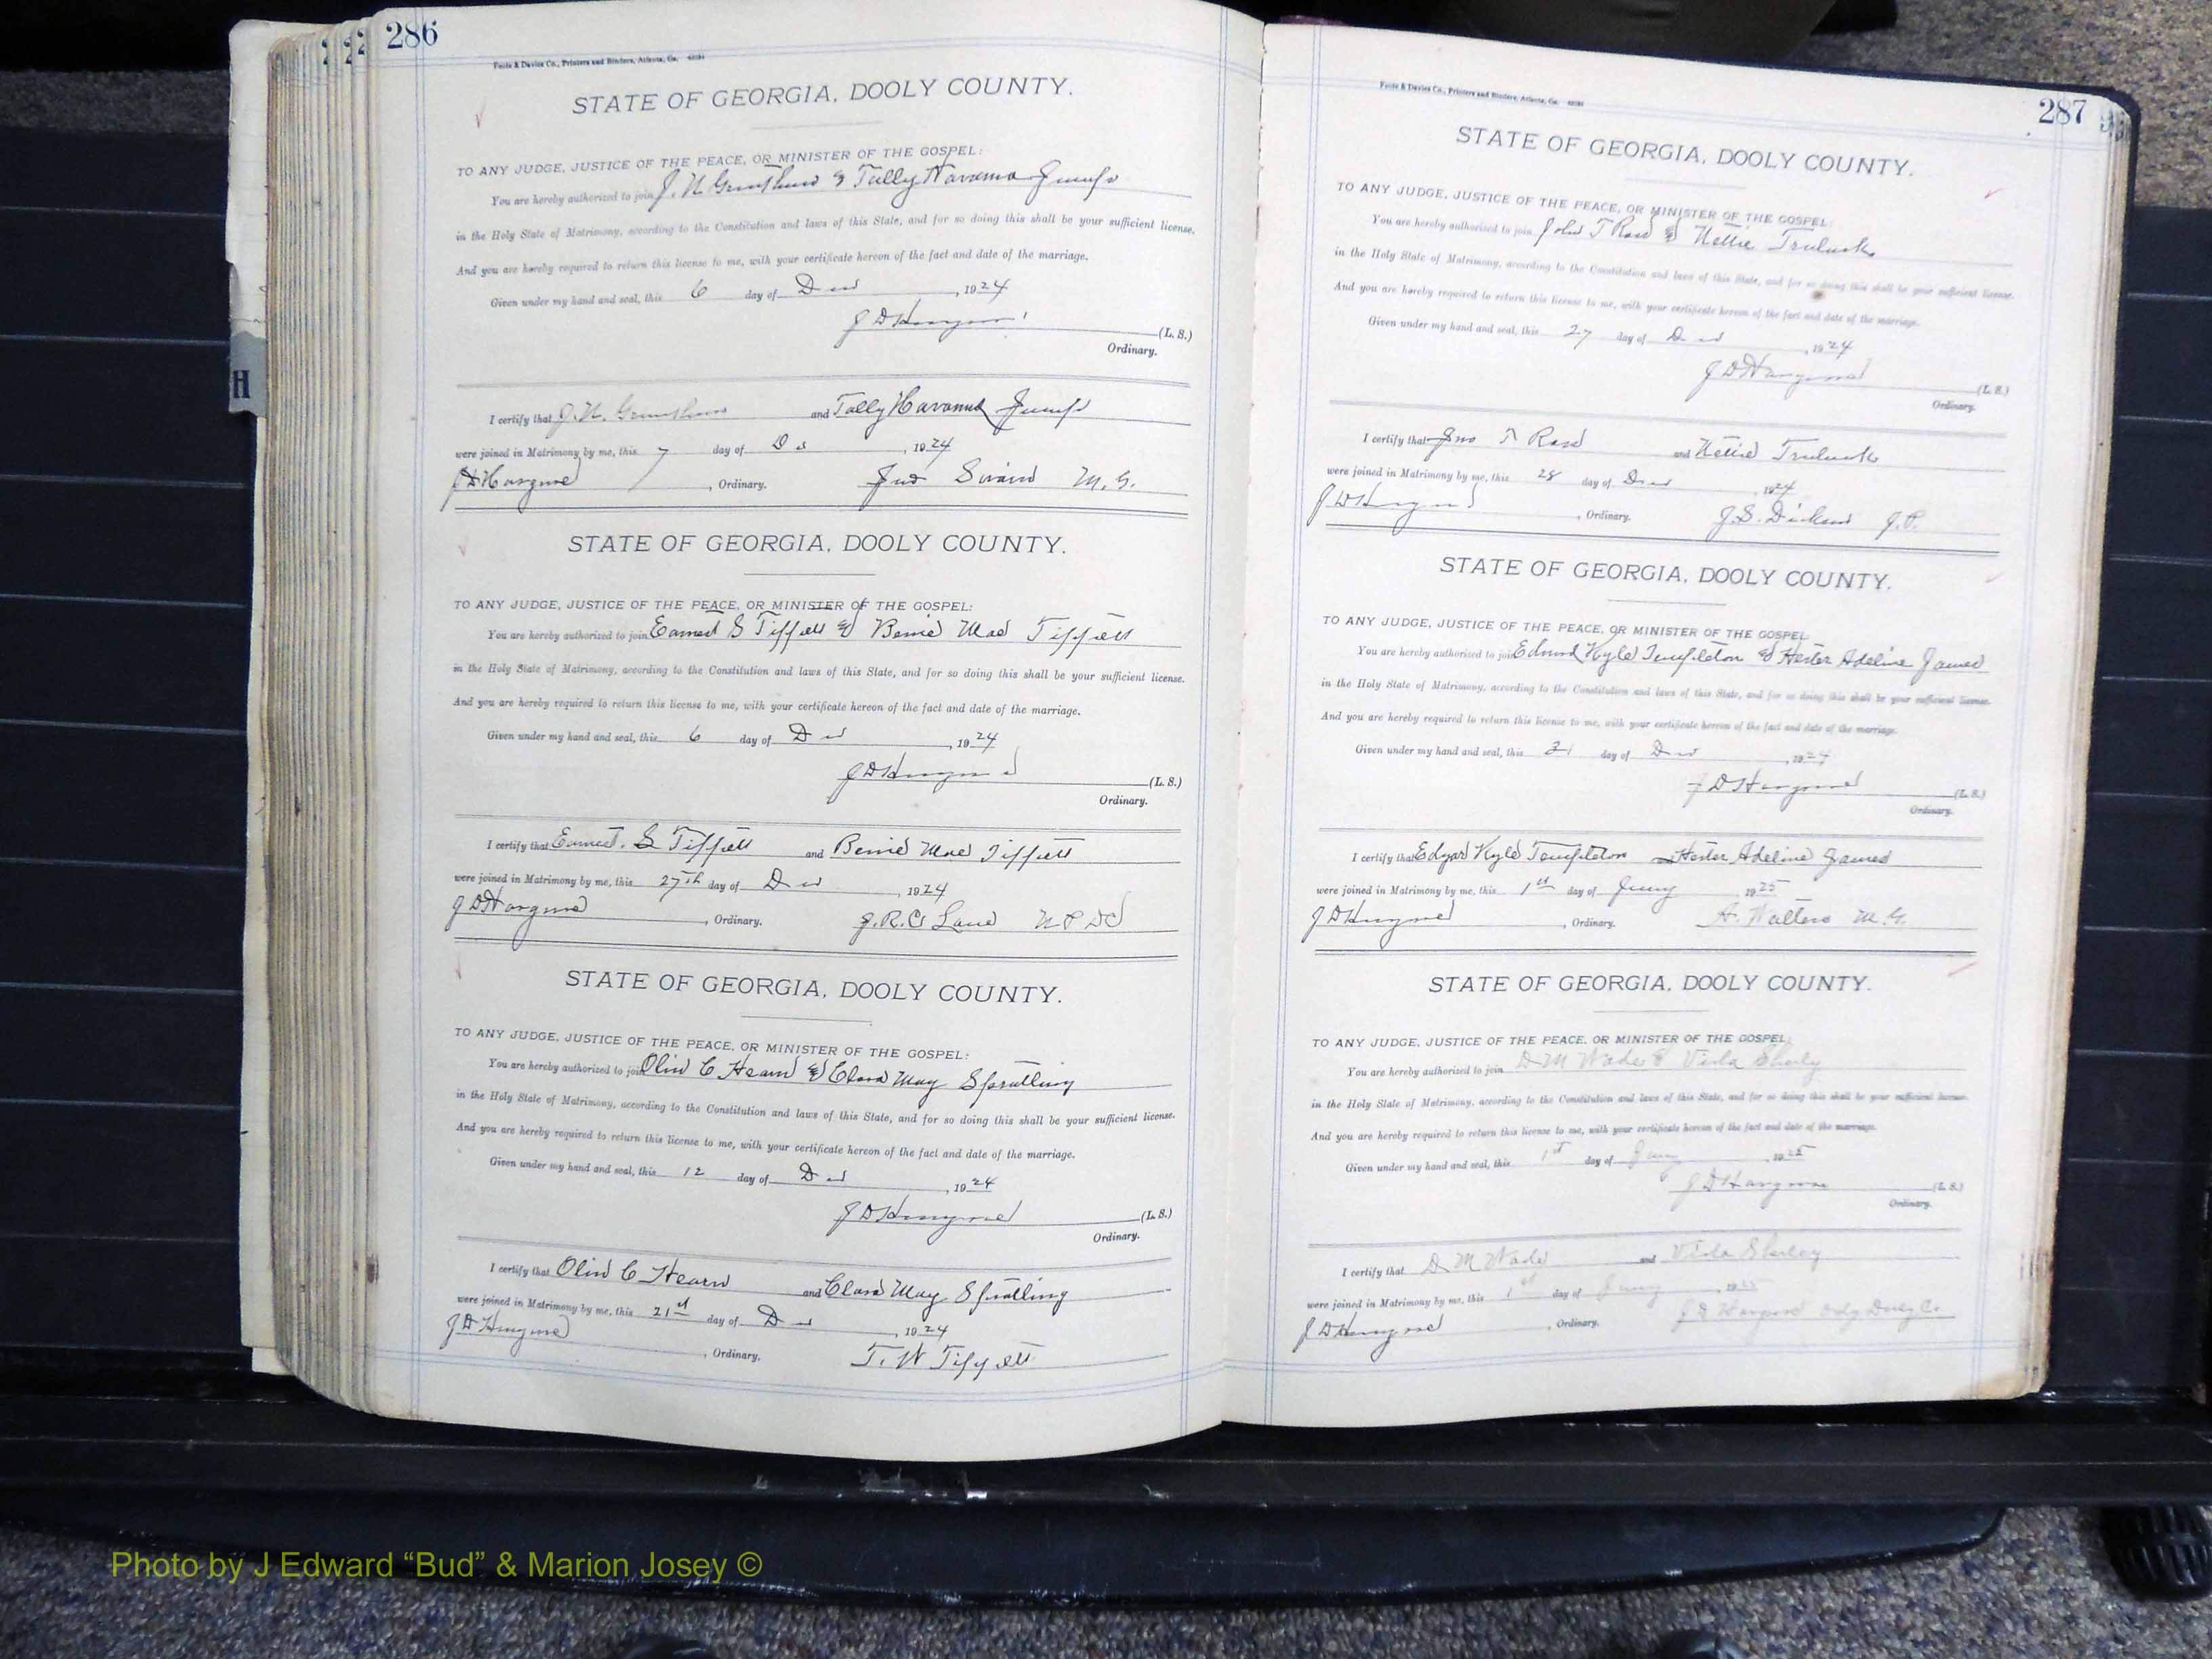 286
Foote & Davies Co., Printers and Binders, Atlanta, Ga.
STATE OF GEORGIA, DOOLY COUNTY.
TO ANY JUDGE, JUSTICE OF THE PEACE, OR MINISTER OF THE GOSPEL:
You are hereby authorized to join J. H. & Tally Havanna
in the Holy State of Matrimony, according to the Constitution and laws of this State, and for so doing this shall be your sufficient license.
And you are hereby required to return this license to me, with your certificate hereon of the fact and date of the marriage.
Given under my hand and seal, this 6 day of Dec, 1924
J D Hargrove (L. S.)
Ordinary.
I certify that J. H. and Tally Havanna
were joined in Matrimony by me, this 7 day of Dec, 1924
J D Hargrove, Ordinary. M. G.
STATE OF GEORGIA, DOOLY COUNTY.
TO ANY JUDGE, JUSTICE OF THE PEACE, OR MINISTER OF THE GOSPEL:
You are hereby authorized to join Earnest S Tippett & Bernie Mae Tippett
in the Holy State of Matrimony, according to the Constitution and laws of this State, and for so doing this shall be your sufficient license.
And you are hereby required to return this license to me, with your certificate hereon of the fact and date of the marriage.
Given under my hand and seal, this 6 day of Dec, 1924
J D Hargrove (L. S.)
Ordinary.
I certify that Earnest. S Tippett and Bernie Mae Tippett
were joined in Matrimony by me, this 27th day of Dec, 1924
J D Hargrove, Ordinary. J. R. C. Lane N P D C
STATE OF GEORGIA, DOOLY COUNTY.
TO ANY JUDGE, JUSTICE OF THE PEACE, OR MINISTER OF THE GOSPEL:
You are hereby authorized to join Olin C Hearn & Clara May Spratling
in the Holy State of Matrimony, according to the Constitution and laws of this State, and for so doing this shall be your sufficient license.
And you are hereby required to return this license to me, with your certificate hereon of the fact and date of the marriage.
Given under my hand and seal, this 12 day of Dec, 1924
J D Hargrove (L. S.)
Ordinary.
I certify that Olin C Hearn and Clara May Spratling
were joined in Matrimony by me, this 21st day of Dec, 1924
J D Hargrove, Ordinary. T. W Tippett
287
Foote & Davies Co., Printers and Binders, Atlanta, Ga.
STATE OF GEORGIA, DOOLY COUNTY.
TO ANY JUDGE, JUSTICE OF THE PEACE, OR MINISTER OF THE GOSPEL:
You are hereby authorized to join John T & Nettie Truluck
in the Holy State of Matrimony, according to the Constitution and laws of this State, and for so doing this shall be your sufficient license.
And you are hereby required to return this license to me, with your certificate hereon of the fact and date of the marriage.
Given under my hand and seal, this 27 day of Dec, 1924
J D Hargrove (L. S.)
Ordinary.
I certify that Jno T and Nettie Truluck
were joined in Matrimony by me, this 28 day of Dec, 1924
J D Hargrove, Ordinary. J. S. J. P.
STATE OF GEORGIA, DOOLY COUNTY.
TO ANY JUDGE, JUSTICE OF THE PEACE, OR MINISTER OF THE GOSPEL:
You are hereby authorized to join Kyle Templeton & Hester Adeline James
in the Holy State of Matrimony, according to the Constitution and laws of this State, and for so doing this shall be your sufficient license.
And you are hereby required to return this license to me, with your certificate hereon of the fact and date of the marriage.
Given under my hand and seal, this 21 day of Dec, 1924
J D Hargrove (L. S.)
Ordinary.
I certify that Edgar Kyle Templeton and Hester Adeline James
were joined in Matrimony by me, this 1st day of Jany, 1925
J D Hargrove, Ordinary. A. Walters M. G.
STATE OF GEORGIA, DOOLY COUNTY.
TO ANY JUDGE, JUSTICE OF THE PEACE, OR MINISTER OF THE GOSPEL:
You are hereby authorized to join D M Wade & Viola
in the Holy State of Matrimony, according to the Constitution and laws of this State, and for so doing this shall be your sufficient license.
And you are hereby required to return this license to me, with your certificate hereon of the fact and date of the marriage.
Given under my hand and seal, this 1st day of Jany, 1925
J D Hargrove (L. S.)
Ordinary.
I certify that D M Wade and Viola
were joined in Matrimony by me, this 1st day of Jany, 1925
J D Hargrove, Ordinary. J D Hargrove Ordy Dooly Co.
H
Photo by J Edward “Bud” & Marion Josey ©